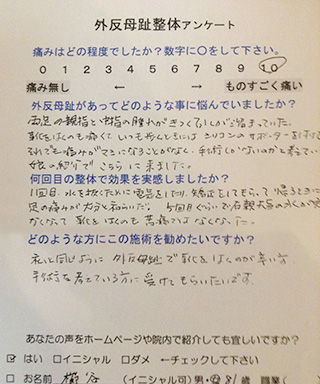 外反母趾整体アンケート
痛みはどの程度でしたか?数字に○をして下さい。
0 1 2 3 4 5 6 7 8 9 10
痛み無し ← → ものすごく痛い
外反母趾があってどのような事に悩んでいましたか?
両足の親指と
靴をはくのも痛くて いつも シリコンのサポーターを
それでも痛みがマシになることがなく、手術しかないのかと考えて
の紹介でこちらに来ました。
何回目の整体で効果を実感しましたか?
1回目、水を抜くために電気をしたり、矯正をしてもらって帰るときに
足の痛みが大分と和らいだ。 5回目ぐらいで
なくなって 靴をはくのも苦痛ではなくなった。
どのような方にこの施術を勧めたいですか?
私と同じように 外反母趾で靴をはくのが辛い方
手術を考えている方に 受けてもらいたいです。
あなたの声をホームページや院内で紹介しても宜しいですか?
はい □イニシャル □ダメ ←チェックして下さい
□お名前 (イニシャル可) 男・女 歳 職業(